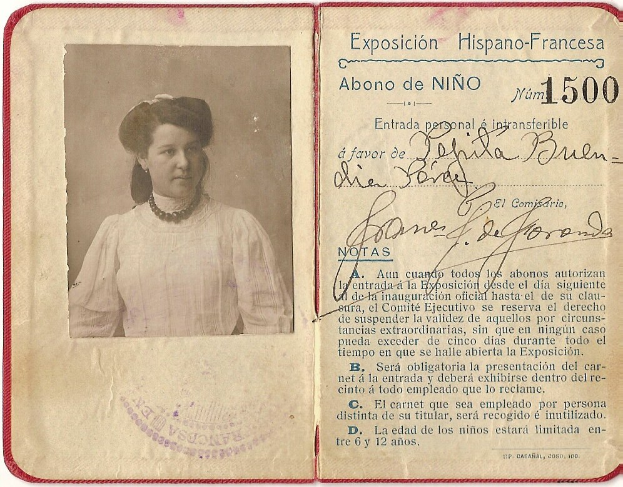 Exposición Hispano-Francesa
Abono de NIÑO
Núm. 1500
Entrada personal é intransferible
á favor de Pepita Buen-
día
El Comisario,
NOTAS
A. Aun cuando todos los abonos autorizan
la entrada á la Exposición desde el día siguiente
al de la inauguración oficial hasta el de su clau-
sura, el Comité Ejecutivo se reserva el derecho
de suspender la validez de aquellos por circuns-
tancias extraordinarias, sin que en ningún caso
pueda exceder de cinco días durante todo el
tiempo en que se halle abierta la Exposición.
B. Será obligatoria la presentación del car-
net á la entrada y deberá exhibirse dentro del re-
cinto á todo empleado que lo reclame.
C. El carnet que sea empleado por persona
distinta de su titular, será recogido é inutilizado.
D. La edad de los niños estará limitada en-
tre 6 y 12 años.
FRANCESA